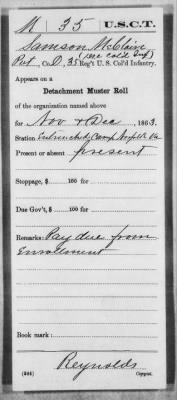 M 35 U.S.C.T.
Samson McClaire
(1 NC Cold Inf)
Pvt, Co. D, 35 Reg't U. S. Col'd Infantry.
Appears on a
Detachment Muster Roll
of the organization named above
for Nov & Dec, 1863.
Station Camp Norfolk Va
Present or absent present
Stoppage, $ 100 for
Due Gov't, $ 100 for
Remarks: Pay due from
Enrollment
Book mark:
Reynolds
(344) Copyist.